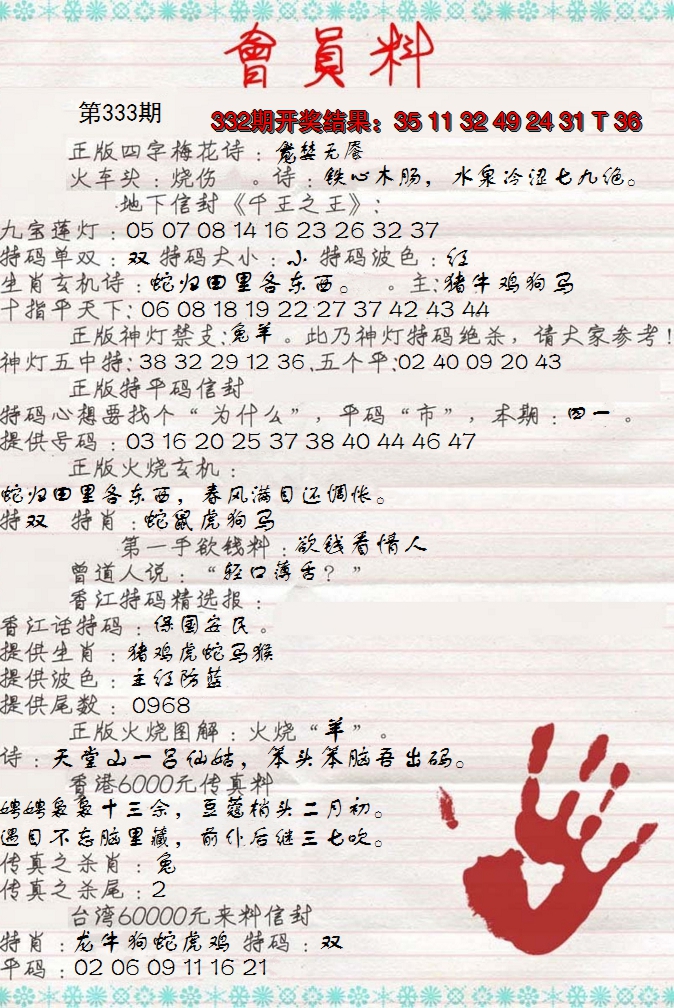 會員料
第333期
332期开奖结果：35 11 32 49 24 31 T 36
正版四字梅花诗：贪婪无厌
火车头：烧伤 。诗：铁心木肠，水泉冷涩七九绝。
地下信封《千王之王》：
九宝莲灯：05 07 08 14 16 23 26 32 37
特码单双：双 特码大小：小 特码波色：红
生肖玄机诗：蛇归田里各东西。 。主：猪牛鸡狗马
十指平天下：06 08 18 19 22 27 37 42 43 44
正版神灯禁支：兔羊 。此乃神灯特码绝杀，请大家参考！
神灯五中特：38 32 29 12 36.五个平：02 40 09 20 43
正版特平码信封
特码心想要找个“为什么”，平码“市”，本期：四一 。
提供号码：03 16 20 25 37 38 40 44 46 47
正版火烧玄机：
蛇归田里各东西，春风满目还惆怅。
特双 特肖：蛇鼠虎狗马
第一手欲钱料：欲钱看情人
曾道人说：“轻口薄舌？”
香江特码精选报：
香江话特码：保国安民。
提供生肖：猪鸡虎蛇马猴
提供波色：主红防蓝
提供尾数：0968
正版火烧图解：火烧“羊”。
诗：天堂山一吕仙姑，笨头笨脑吾出码。
香港6000元传真料
娉娉袅袅十三余，豆蔻梢头二月初。
遇目不忘脑里藏，前仆后继三七吹。
传真之杀肖：兔
传真之杀尾：2
台湾60000元来料信封
特肖：龙牛狗蛇虎鸡 特码：双
平码：02 06 09 11 16 21